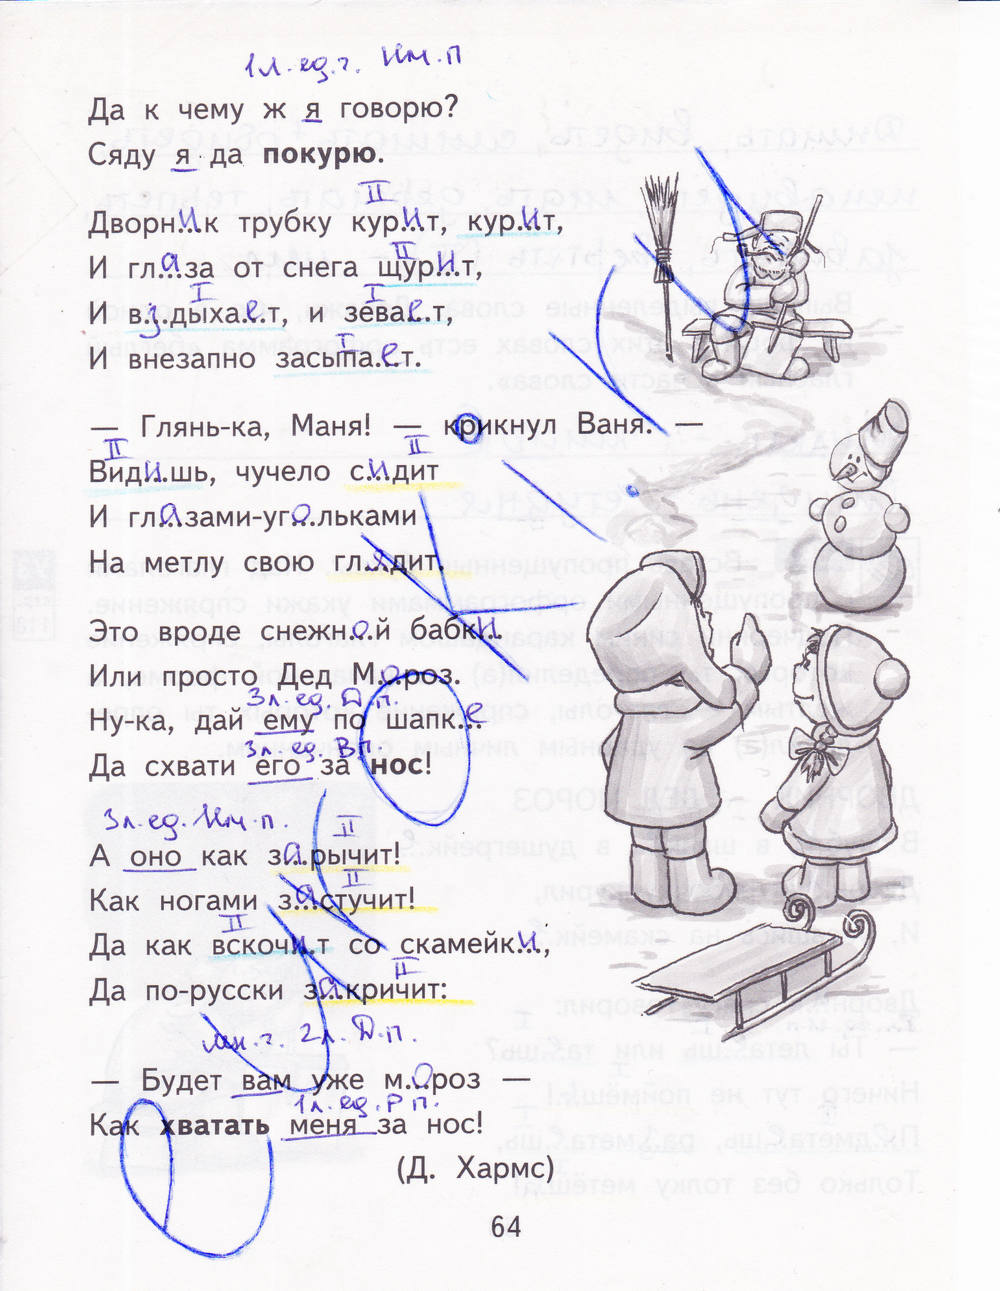 1л. ед.ч. Им.п
Да к чему ж я говорю?
Сяду я да покурю.
II
Дворн.и.к трубку кур.и.т, кур.и.т,
II
И гл.а.за от снега щур.и.т,
I I
И в.з.дыха.е.т, и зева.е.т,
I
И внезапно засыпа.е.т.
— Глянь-ка, Маня! — крикнул Ваня. —
II II
Вид.и.шь, чучело с.и.дит
И гл.а.зами-уг.о.льками
На метлу свою гл.я.дит.
Это вроде снежн.о.й бабк.и.
Или просто Дед М.о.роз.
3л. ед. Д.п.
Ну-ка, дай ему по шапк.е
3л. ед. В.
Да схвати его за нос!
3л. ед. Им. п.
II
А оно как з.а.рычит!
II
Как ногами з.а.стучит!
II
Да как вскоч.и.т со скамейк.и.,
II
Да по-русски з.а.кричит:
мн.ч. 2л. Д.п.
— Будет вам уже м.о.роз —
1л. ед. Р.п.
Как хватать меня за нос!
(Д. Хармс)
64